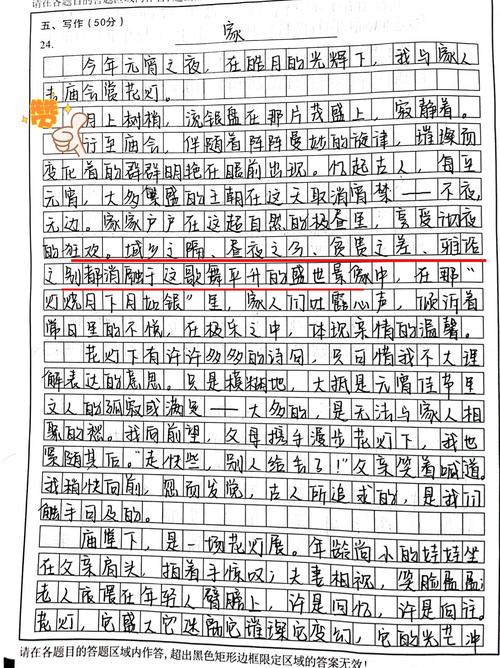 请在各题目的答题区域内作答,超出
五、写作(50分)
24.
家
今年元宵之夜,在皓月的光辉下,我与家人
去庙会赏花灯。
赞
月上树梢,流银盘在那片茂盛上,寂静着。
行至庙会,伴随着阵阵曼妙的旋律,璀璨而
变化着的群群明艳在眼前出现。忆起古人,每至
元宵,大多繁盛的王朝在这天取消宵禁——不夜,
无边。家家户户在这超自然的极昼里,享受彻夜
的狂欢。城乡之隔、昼夜之分、贫贵之差、雅俗
之别都消融于这歌舞平升的盛世景象中,在那“
灯烧月下月如银”里,家人们吐露心声,倾诉着
常日里的不悦,在极乐之中,体现亲情的温馨。
花灯下有许许多多的诗句,只可惜我不大理
解表达的意思。只是模糊地,大抵是元宵佳节里
文人的孤寂或满足——大多的,是无法与家人相
聚的愁。我向前望,父母携手漫步花灯下,我也
紧随其后。“走快些,别人给丢了!”父亲笑着喊道。
我稍快向前,忽而发觉,古人所追求的,是我们
触手可及的。
庙堂下,是一场花灯展。年龄尚小的娃娃坐
在父亲肩头,拍着手惊叹;夫妻相视,笑脸盈盈;
老人依偎在年轻人臂膀上,许是回忆,许是向往。
花灯,它盛大它迷幻它璀璨它变幻,它的光芒冲
请在各题目的答题区域内作答,超出黑色矩形边框限定区域的答案无效!